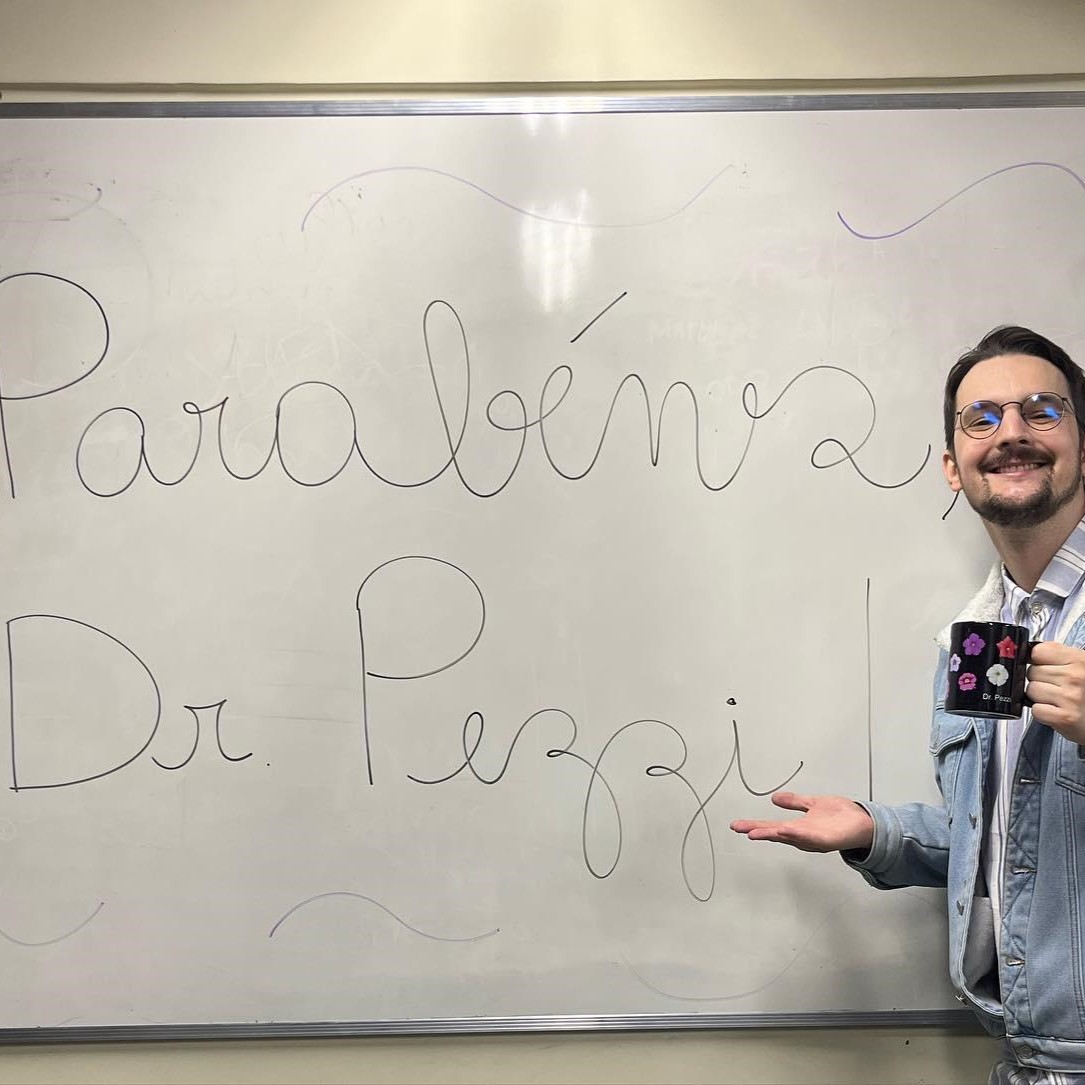 Parabéns,
Dr. Pezzi!
Dr. Pezzi